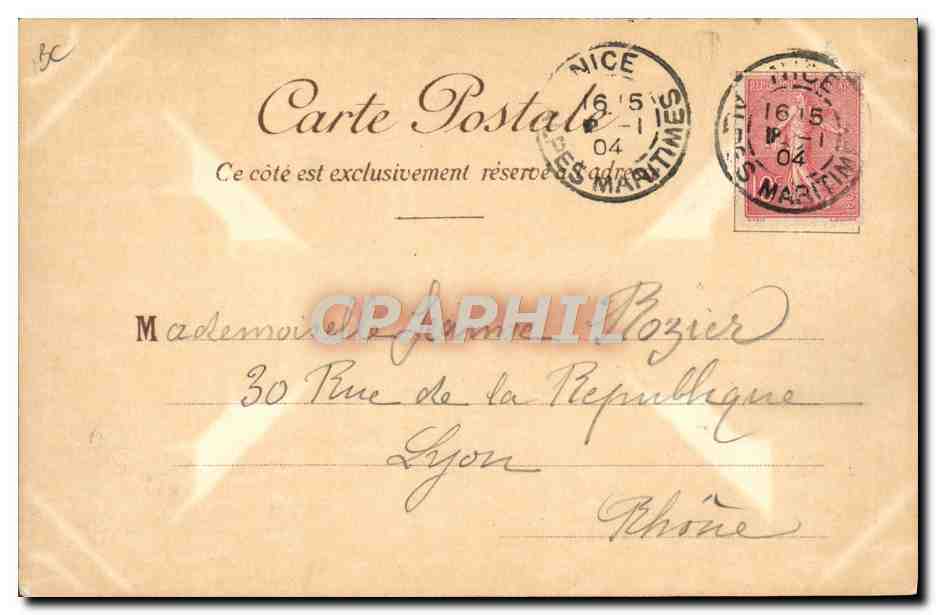 BC
Carte Postale
Ce côté est exclusivement réservé à l'adresse
NICE
16 15
-1
04
ALPES MARITIMES
NICE
16 15
-1
04
ALPES MARITIMES
10c
CPARHIL
Mademoiselle Jeanne Rozier
30 Rue de la République
Lyon
Rhône